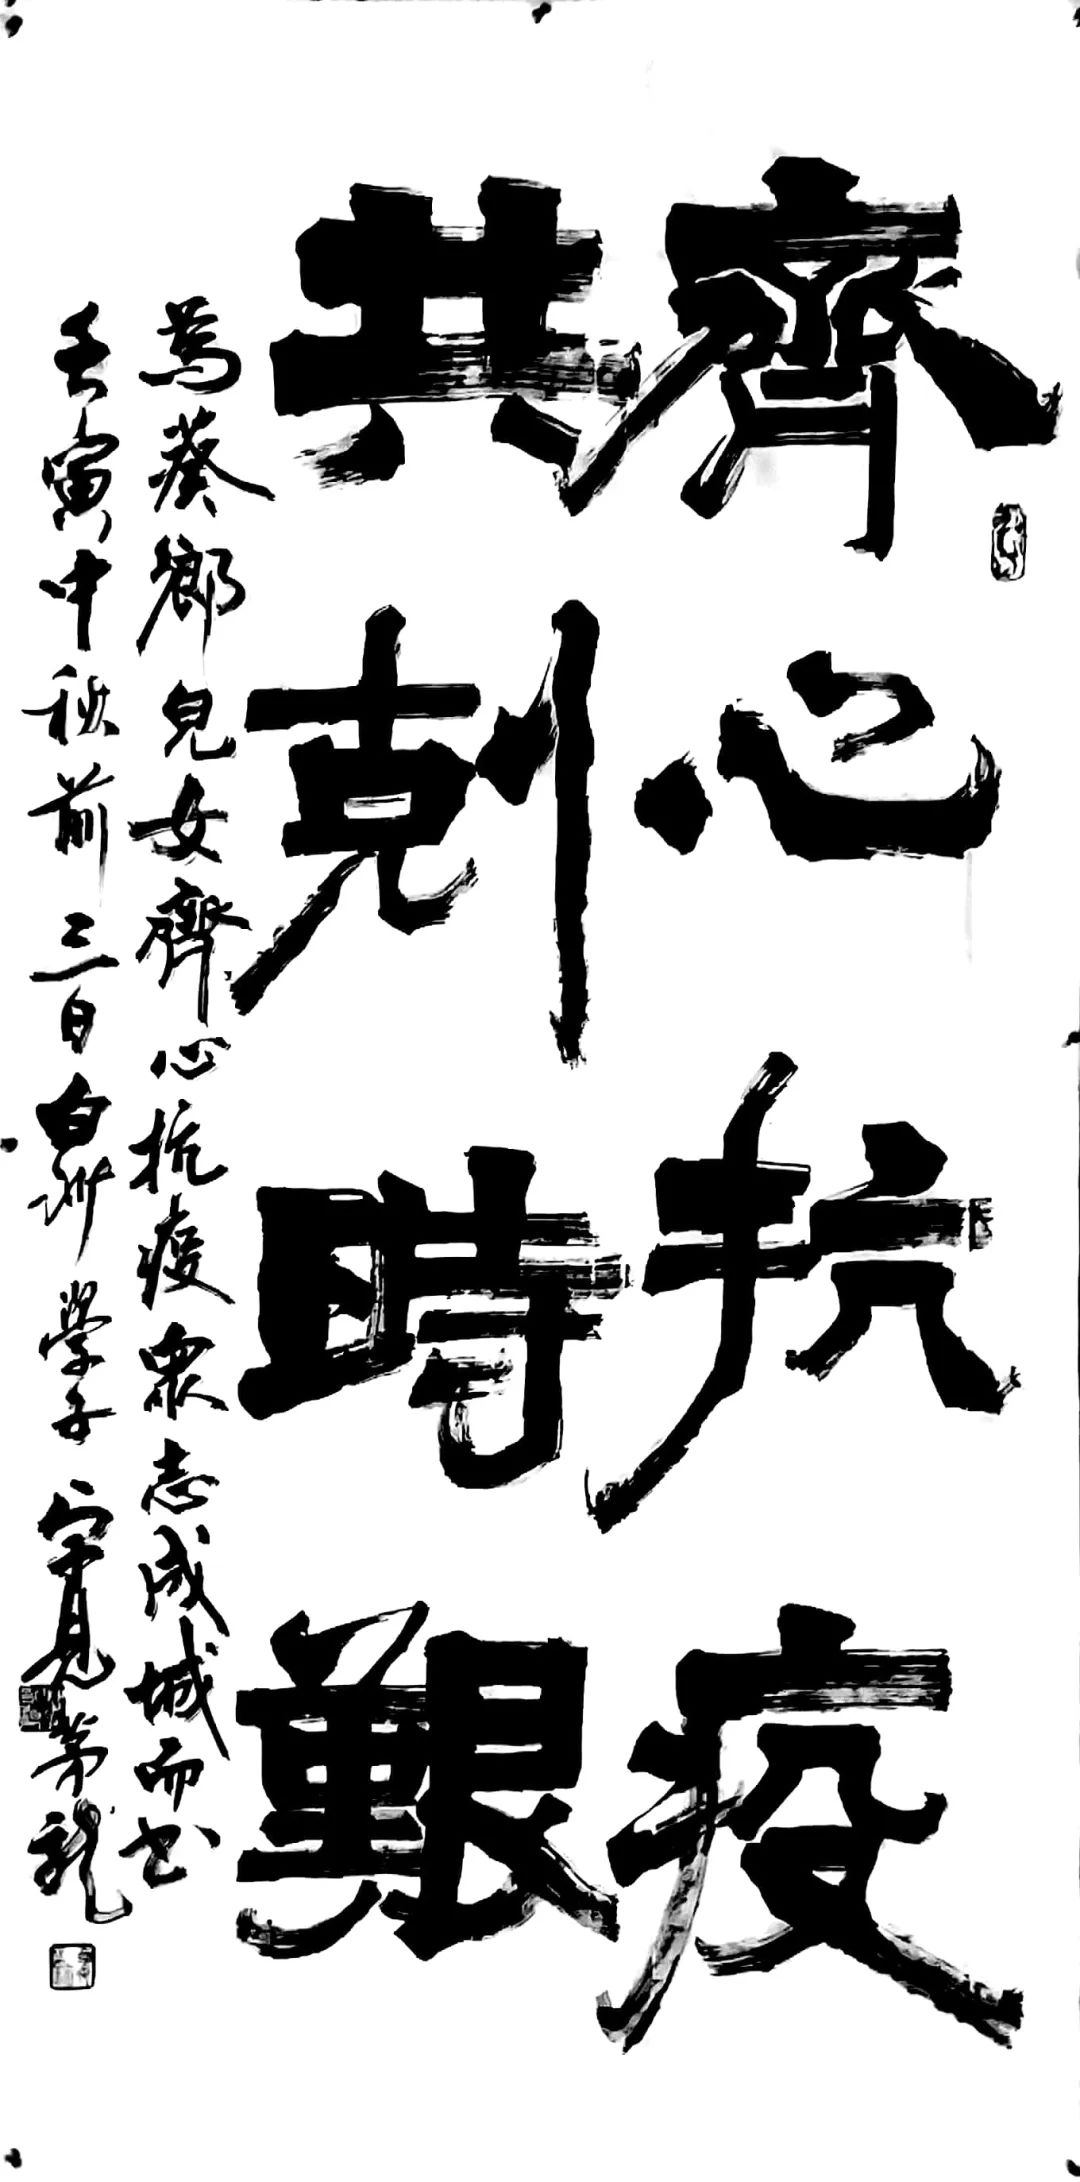 齊心抗疫
共剋時艱
為葵鄉兒女齊心抗疫眾志成城而书
壬寅中秋前三日白沙學子宁寬茅龍